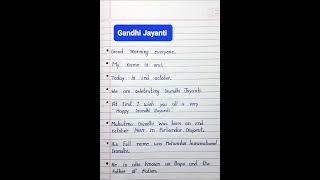 Gandhi Jayanti
Good Morning everyone.
My name is anu.
Today is 2nd october.
We are celebrating Gandhi Jayanti.
At first I wish you all a very
Happy Gandhi Jayanti
Mahatma Gandhi was born on 2nd
october 1869 in Porbandar Gujarat.
His full name was Mohandas karamchand
Gandhi.
He is also known as Bapu and the
father of Nation.